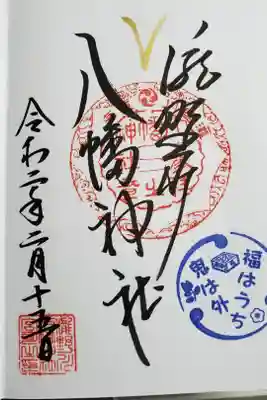 滝野川
八幡神社
令和二年二月十五日
福はうち
鬼は外